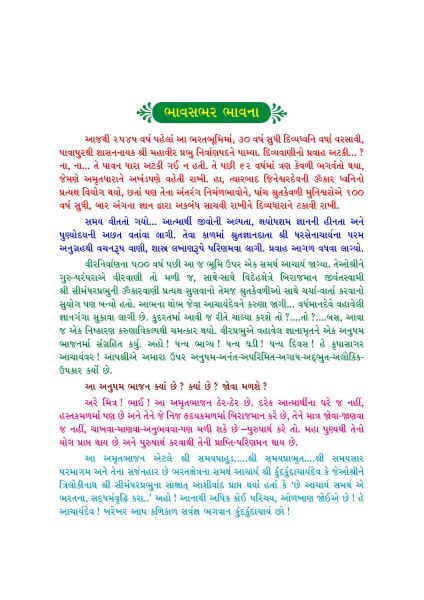 ભાવસભર ભાવના
આજથી ૨૫૪૫ વર્ષ પહેલાં આ ભરતભૂમિમાં, ૩૦ વર્ષ સુધી દિવ્યધ્વનિ વર્ષા વરસાવી,
પાવાપુરથી શાસનનાયક શ્રી મહાવીર પ્રભુ નિર્વાણપદને પામ્યા. દિવ્યવાણીનો પ્રવાહ અટકી...?
ના, ના... તે પાવન ધારા અટકી ગઈ ન હતી. તે પછી ૬૨ વર્ષમાં ત્રણ કેવળી ભગવંતો થયા,
જેમણે અમૃતધારાને અખંડપણે વહેતી રાખી. હા, ત્યારબાદ જિનેશ્વરદેવની ૐકાર ધ્વનિનો
પ્રત્યક્ષ વિયોગ થયો, છતાં પણ તેના અંતરંગ નિર્મળભાવોને, પાંચ શ્રુતકેવળી મુનિશ્વરોએ ૧૦૦
વર્ષ સુધી, બાર અંગના જ્ઞાન દ્વારા અકબંધ સાચવી રાખીને દિવ્યધારાને ટકાવી રાખી.
સમય વીતતો ગયો... આત્માર્થી જીવોની અલ્પતા, ક્ષયોપશમ જ્ઞાનની હીનતા અને
પુણ્યોદયની અછત વર્તાવા લાગી. તેવા કાળમાં શ્રુતજ્ઞાનદાતા શ્રી ધરસેનાચાર્યના પરમ
અનુગ્રહથી વચનરૂપ વાણી, શાસ્ત્ર લખાણરૂપે પરિણમવા લાગી. પ્રવાહ આગળ વધવા લાગ્યો.
વીરનિર્વાણના ૫૦૦ વર્ષ પછી આ જ ભૂમિ ઉપર એક સમર્થ આચાર્ય જાગ્યા. તેઓશ્રીને
ગુરુ-પરંપરાએ વીરવાણી તો મળી જ, સાથે-સાથે વિદેહક્ષેત્રે બિરાજમાન જીવંતસ્વામી
શ્રી સીમંધરપ્રભુની ૐકારવાણી પ્રત્યક્ષ સુણવાનો તેમજ શ્રુતકેવળીઓ સાથે ચર્ચા-વાર્તા કરવાનો
સુયોગ પણ બન્યો હતો. આભના થોભ જેવા આચાર્યદેવને કરુણા જાગી... વર્ધમાનદેવે વહાવેલી
જ્ઞાનગંગા સુકાવા લાગી છે. કુદરતમાં આવી જ રીતે ચાલ્યા કરશે તો ?....તો ?....બસ, આવા
જ એક નિષ્કારણ કરુણાવિકલ્પથી ચમત્કાર થયો. વીરપ્રભુએ વહાવેલ જ્ઞાનામૃતને એક અનુપમ
ભાજનમાં સંગ્રહિત કર્યું. અહો ! ધન્ય ભાગ્ય ! ધન્ય ઘડી ! ધન્ય દિવસ ! હે કૃપાસાગર
આચાર્યવર ! આપશ્રીએ અમારા ઉપર અનુપમ-અનંત-અપરિમિત-અગાધ-અદ્ભુત-અલૌકિક-
ઉપકાર કર્યો છે.
આ અનુપમ ભાજન ક્યાં છે ? ક્યાં છે ? જોવા મળશે ?
અરે મિત્ર ! ભાઈ ! આ અમૃતભાજન ઠેર-ઠેર છે. દરેક આત્માર્થીના ઘરે જ નહીં,
હસ્તકમળમાં પણ છે અને તેને જે નિજ હૃદયકમળમાં બિરાજમાન કરે છે, તેને માત્ર જોવા-જાણવા
જ નહીં, ચાખવા-માણવા-અનુભવવા-પણ મળી શકે છે –પુરુષાર્થ કરે તો. મહા પુણ્યથી તેનો
યોગ પ્રાપ્ત થાય છે અને પુરુષાર્થ કરવાથી તેની પ્રાપ્તિ-પરિણમન થાય છે.
આ અમૃતભાજન એટલે શ્રી સમયપાહુડ.....શ્રી સમયપ્રાભૃત....શ્રી સમયસાર
પરમાગમ અને તેના સર્જનહાર છે ભરતક્ષેત્રના સમર્થ આચાર્ય શ્રી કુંદકુંદાચાર્યદેવ કે જેઓશ્રીને
ત્રિલોકીનાથ શ્રી સીમંધરપ્રભુના સાક્ષાત્ આશીર્વાદ પ્રાપ્ત થયાં હતાં કે ‘છે આચાર્ય સમર્થ એ
ભરતના, સદ્ધર્મવૃદ્ધિ કરા..’ અહો ! આનાથી અધિક કોઈ પરિચય, ઓળખાણ જોઈએ છે ! હે
આચાર્યદેવ ! ખરેખર આપ કળિકાળ સર્વજ્ઞ ભગવાન કુંદકુંદાચાર્ય છો !